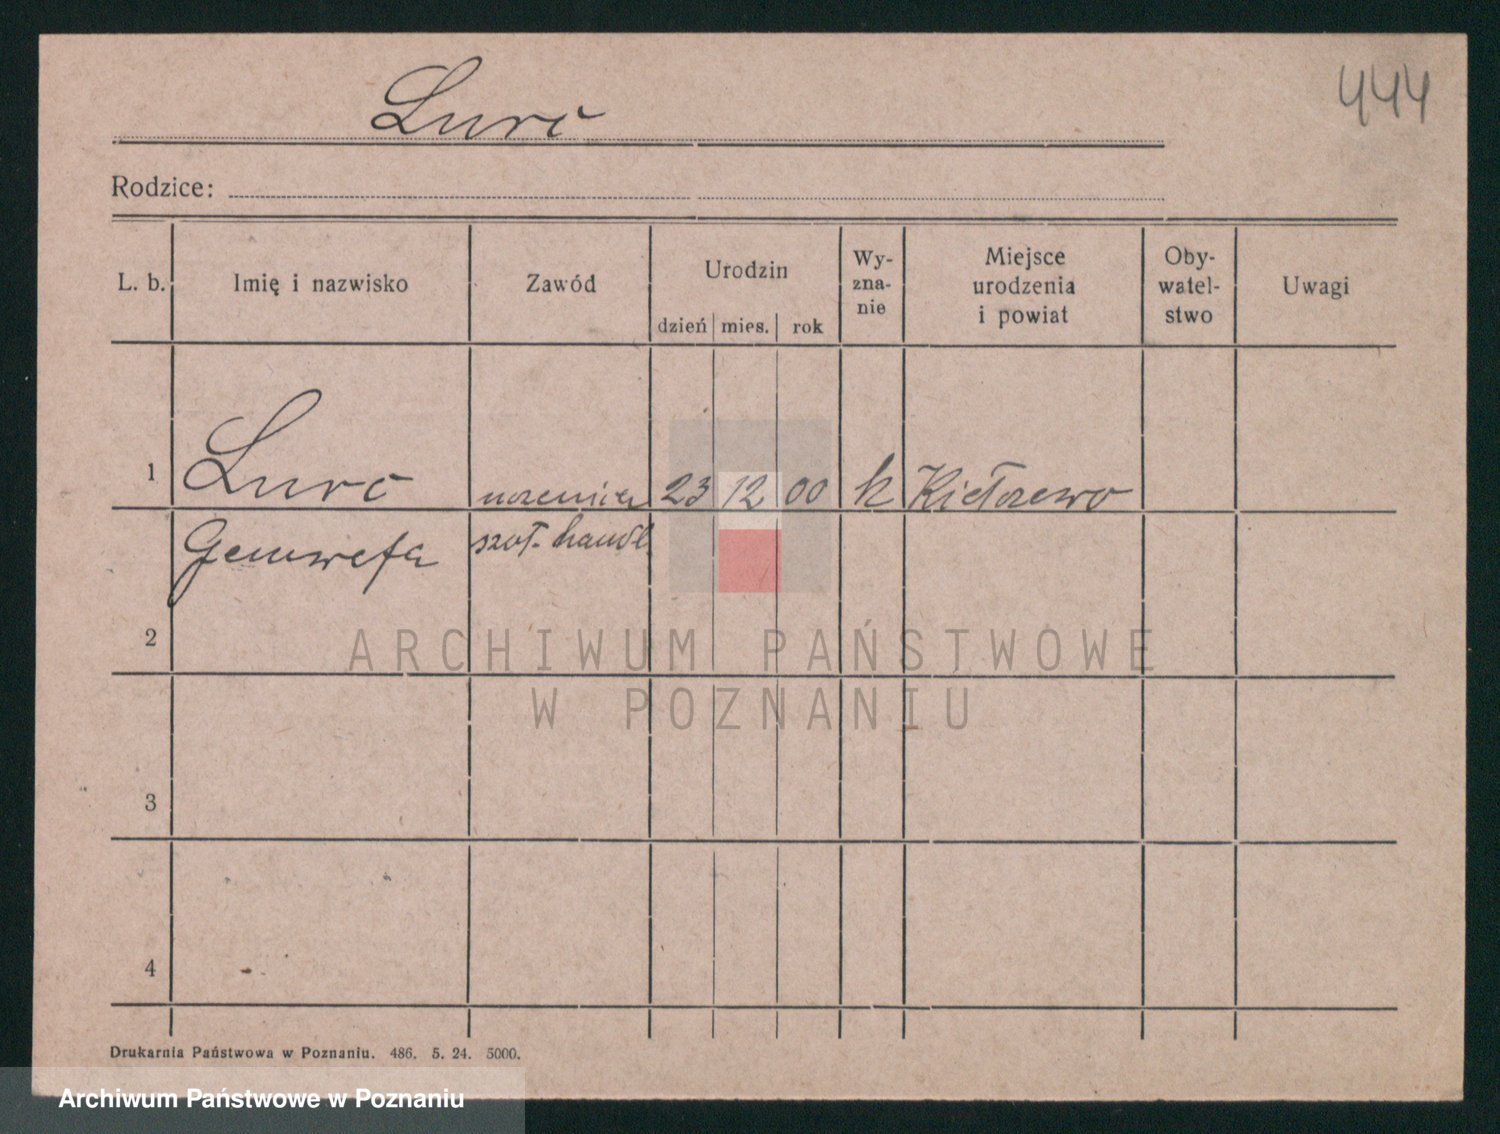 Lurc
444
Rodzice:
L. b. Imię i nazwisko Zawód Urodzin dzień mies. rok Wy-zna-nie Miejsce urodzenia i powiat Oby-watel-stwo Uwagi
1 Lurc uczenica 23 12 00 k Kiełczewo
Genowefa szkoł. handl.
2
ARCHIWUM PAŃSTWOWE
W POZNANIU
3
4
Drukarnia Państwowa w Poznaniu. 486. 5. 24. 5000.
Archiwum Państwowe w Poznaniu